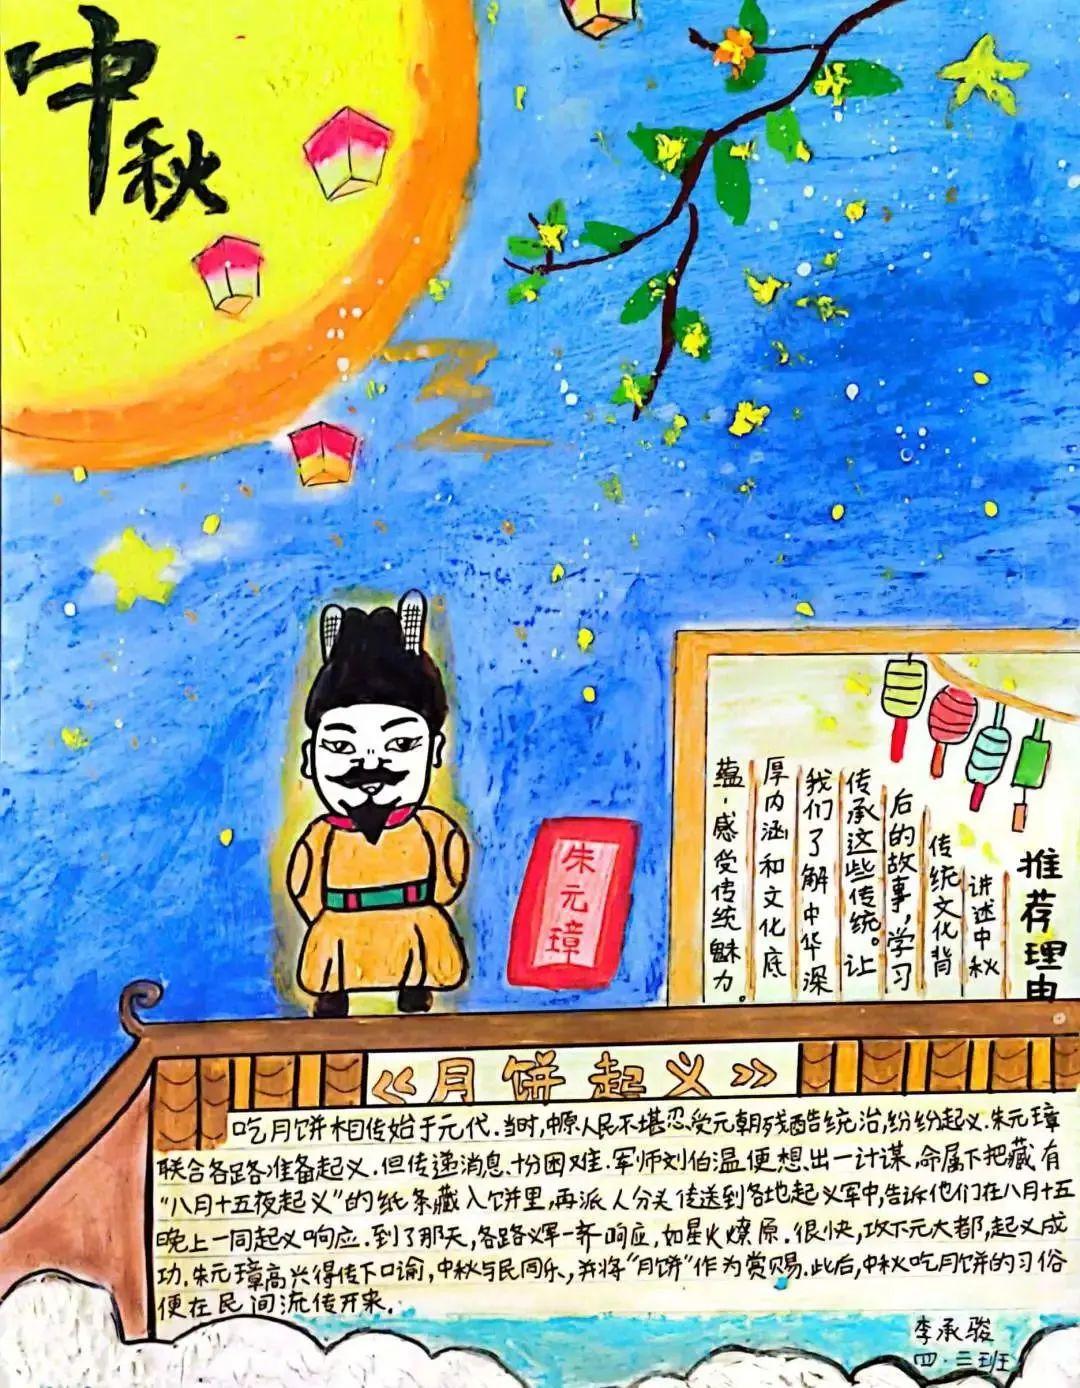 中
秋
朱元璋
推荐理由
讲述中秋
传统文化背
后的故事,学习
传承这些传统。让
我们了解中华深
厚内涵和文化底
蕴,感受传统魅力。
《月饼起义》
吃月饼相传始于元代.当时,中原人民不堪忍受元朝残酷统治,纷纷起义.朱元璋
联合各路准备起义.但传递消息十分困难.军师刘伯温便想出一计谋,命属下把藏有
“八月十五夜起义”的纸条藏入饼里,再派人分头传送到各地起义军中,告诉他们在八月十五
晚上一同起义响应.到了那天,各路义军一齐响应,如星火燎原.很快,攻下元大都,起义成
功.朱元璋高兴得传下口谕,中秋与民同乐,并将“月饼”作为赏赐.此后,中秋吃月饼的习俗
便在民间流传开来.
李承骏
四.三班